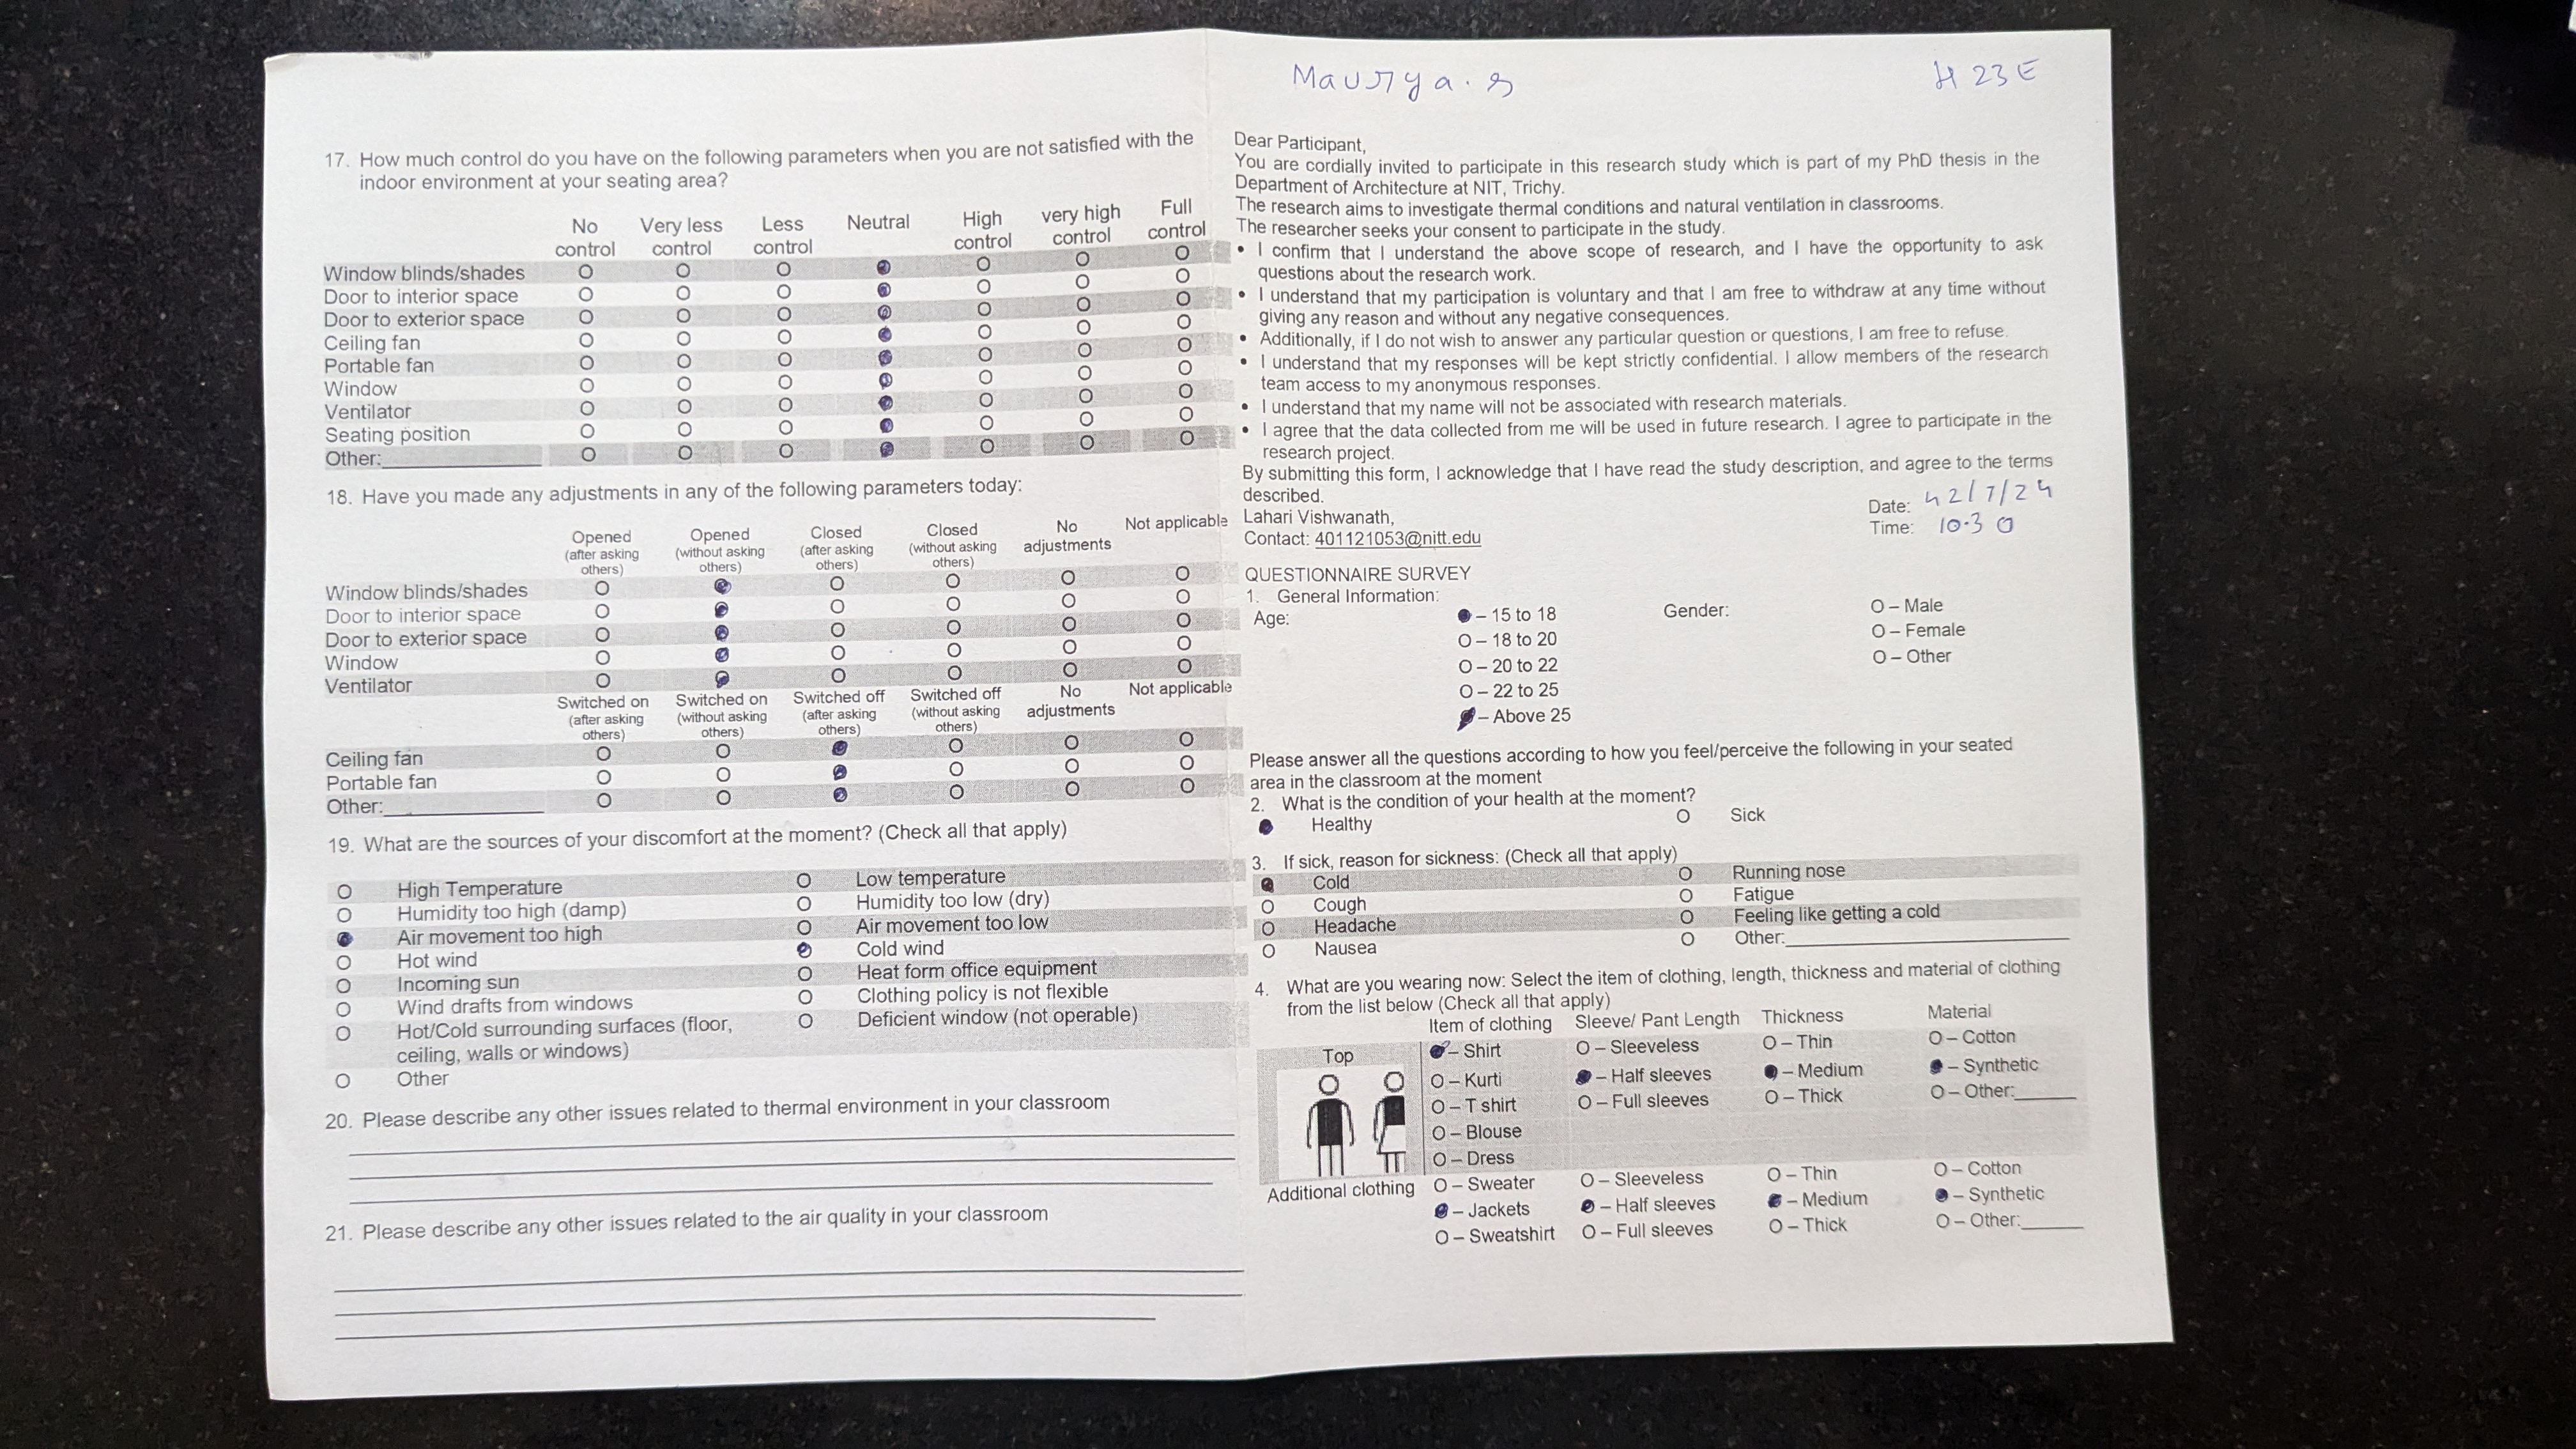 17. How much control do you have on the following parameters when you are not satisfied with the
indoor environment at your seating area?
No control Very less control Less control Neutral High control very high control Full control
Window blinds/shades O O O ● O O O
Door to interior space O O O ● O O O
Door to exterior space O O O ● O O O
Ceiling fan O O O ● O O O
Portable fan O O O ● O O O
Window O O O ● O O O
Ventilator O O O ● O O O
Seating position O O O ● O O O
Other: O O O ● O O O
18. Have you made any adjustments in any of the following parameters today:
Opened (after asking others) Opened (without asking others) Closed (after asking others) Closed (without asking others) No adjustments Not applicable
Window blinds/shades O ● O O O O
Door to interior space O ● O O O O
Door to exterior space O ● O O O O
Window O ● O O O O
Ventilator O ● O O O O
Switched on (after asking others) Switched on (without asking others) Switched off (after asking others) Switched off (without asking others) No adjustments Not applicable
Ceiling fan O O ● O O O
Portable fan O O ● O O O
Other: O O ● O O O
19. What are the sources of your discomfort at the moment? (Check all that apply)
O High Temperature O Low temperature
O Humidity too high (damp) O Humidity too low (dry)
● Air movement too high O Air movement too low
O Hot wind ● Cold wind
O Incoming sun O Heat form office equipment
O Wind drafts from windows O Clothing policy is not flexible
O Hot/Cold surrounding surfaces (floor, O Deficient window (not operable)
ceiling, walls or windows)
O Other
20. Please describe any other issues related to thermal environment in your classroom
21. Please describe any other issues related to the air quality in your classroom
Maurya. s H 23E
Dear Participant,
You are cordially invited to participate in this research study which is part of my PhD thesis in the
Department of Architecture at NIT, Trichy.
The research aims to investigate thermal conditions and natural ventilation in classrooms.
The researcher seeks your consent to participate in the study.
• I confirm that I understand the above scope of research, and I have the opportunity to ask
questions about the research work.
• I understand that my participation is voluntary and that I am free to withdraw at any time without
giving any reason and without any negative consequences.
• Additionally, if I do not wish to answer any particular question or questions, I am free to refuse.
• I understand that my responses will be kept strictly confidential. I allow members of the research
team access to my anonymous responses.
• I understand that my name will not be associated with research materials.
• I agree that the data collected from me will be used in future research. I agree to participate in the
research project.
By submitting this form, I acknowledge that I have read the study description, and agree to the terms
described.
Date:
Lahari Vishwanath,
Time: 10.30
Contact: 401121053@nitt.edu
QUESTIONNAIRE SURVEY
1. General Information:
Age: ● – 15 to 18 Gender: O – Male
O – 18 to 20 O – Female
O – 20 to 22 O – Other
O – 22 to 25
● – Above 25
Please answer all the questions according to how you feel/perceive the following in your seated
area in the classroom at the moment
2. What is the condition of your health at the moment?
● Healthy O Sick
3. If sick, reason for sickness: (Check all that apply)
● Cold O Running nose
O Cough O Fatigue
O Headache O Feeling like getting a cold
O Nausea O Other:
4. What are you wearing now: Select the item of clothing, length, thickness and material of clothing
from the list below (Check all that apply)
Item of clothing Sleeve/ Pant Length Thickness Material
Top ● – Shirt O – Sleeveless O – Thin O – Cotton
O – Kurti ● – Half sleeves ● – Medium ● – Synthetic
O – T shirt O – Full sleeves O – Thick O – Other:
O – Blouse
O – Dress
Additional clothing O – Sweater O – Sleeveless O – Thin O – Cotton
● – Jackets ● – Half sleeves ● – Medium ● – Synthetic
O – Sweatshirt O – Full sleeves O – Thick O – Other: